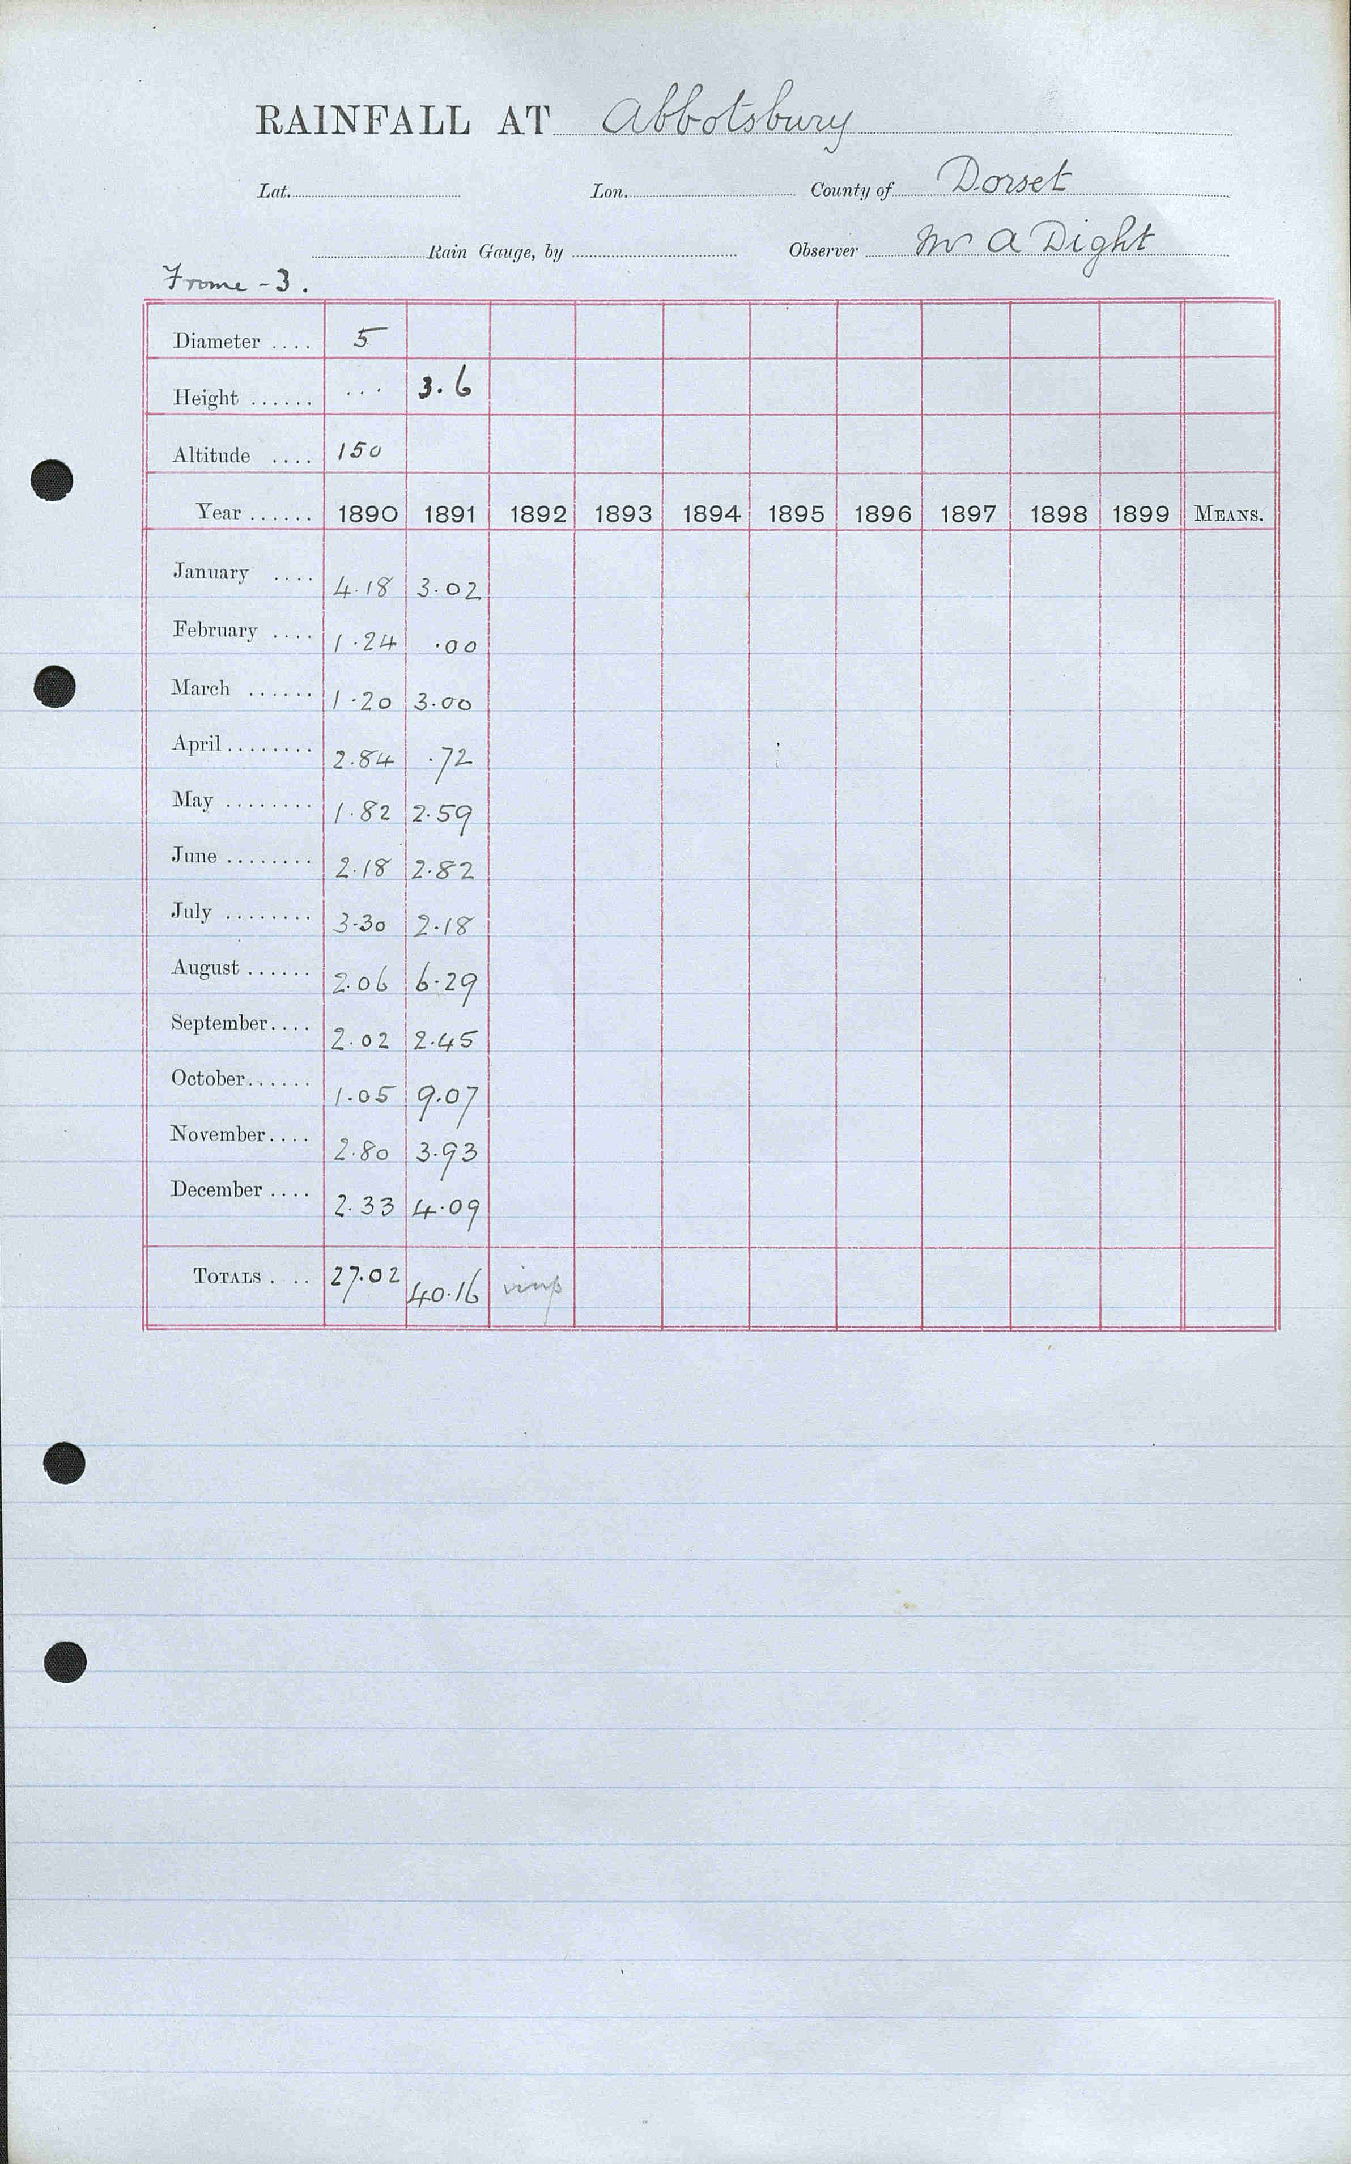 RAINFALL AT Abbotsbury
Lat. Lon. County of Dorset
Rain Gauge, by Observer Mr A Dight
Frome - 3.
Diameter .... 5
Height ...... ... 3.6
Altitude .... 150
Year ...... 1890 1891 1892 1893 1894 1895 1896 1897 1898 1899 MEANS.
January .... 4.18 3.02
February .... 1.24 .00
March ...... 1.20 3.00
April ........ 2.84 .72
May ........ 1.82 2.59
June ........ 2.18 2.82
July ........ 3.30 2.18
August ...... 2.06 6.29
September.... 2.02 2.45
October...... 1.05 9.07
November.... 2.80 3.93
December .... 2.33 4.09
TOTALS . .. 27.02 40.16